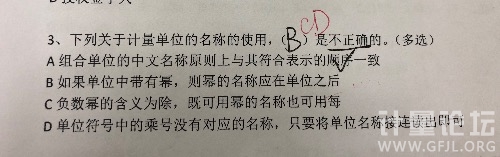 D 授权签字人
3、下列关于计量单位的名称的使用，（B CD）是不正确的。（多选）
A 组合单位的中文名称原则上与其符合表示的顺序一致
B 如果单位中带有幂，则幂的名称应在单位之后
C 负数幂的含义为除，既可用幂的名称也可用每
D 单位符号中的乘号没有对应的名称，只要将单位名称接连读出即可
计量论坛
WWW.GFJL.ORG